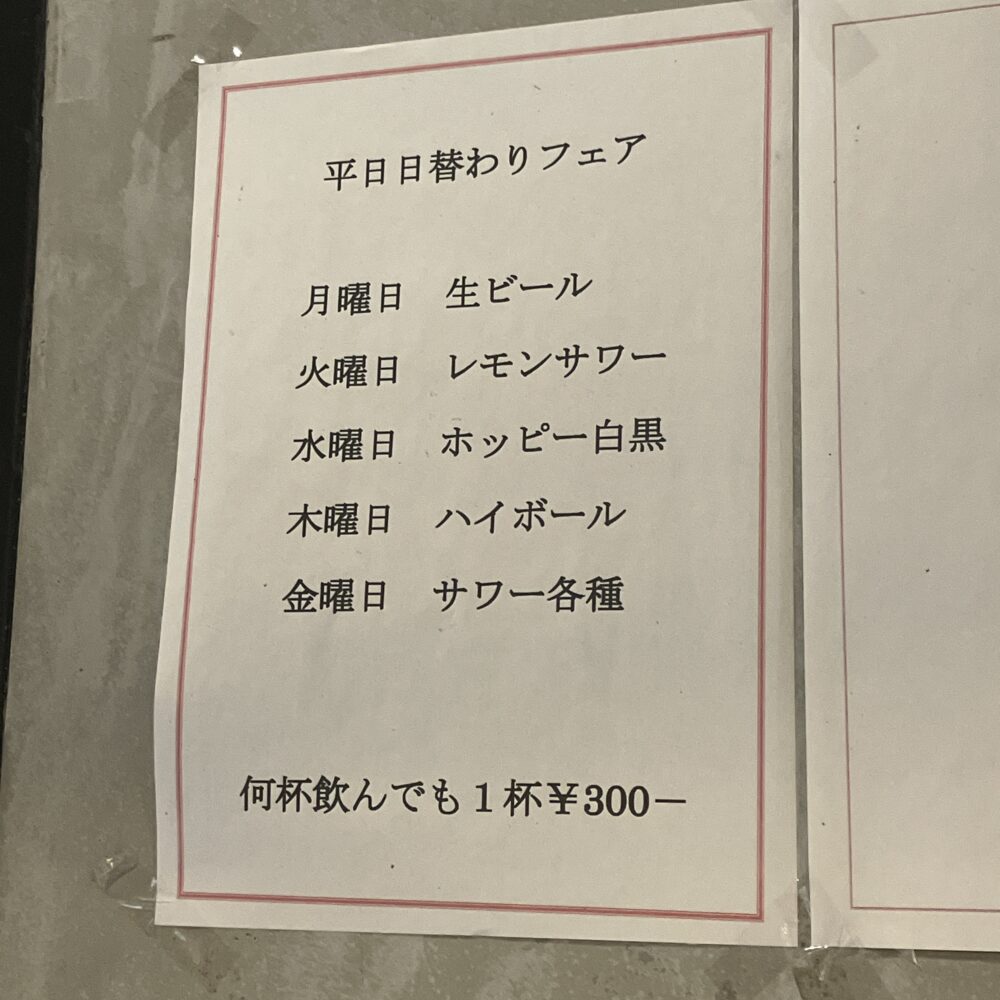 平日日替わりフェア
月曜日　生ビール
火曜日　レモンサワー
水曜日　ホッピー白黒
木曜日　ハイボール
金曜日　サワー各種
何杯飲んでも１杯￥300－